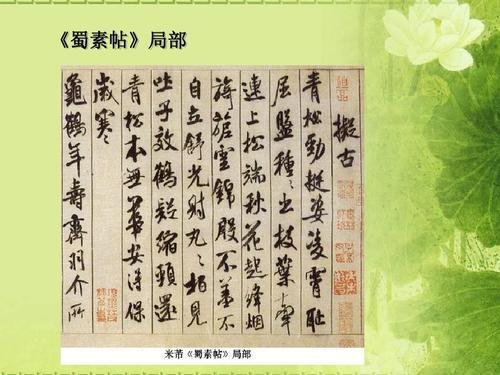 《蜀素帖》局部
擬古
青松勁挺姿凌霄耻
屈盤種々出枝葉牽
連上松端秋花起絳烟
旖旎雲錦殷不羞不
自立舒光射丸々柏見
吐子效鶴疑縮頸還
青松本無華安得保
歲寒
龜鶴年壽齊羽介所
米芾《蜀素帖》局部